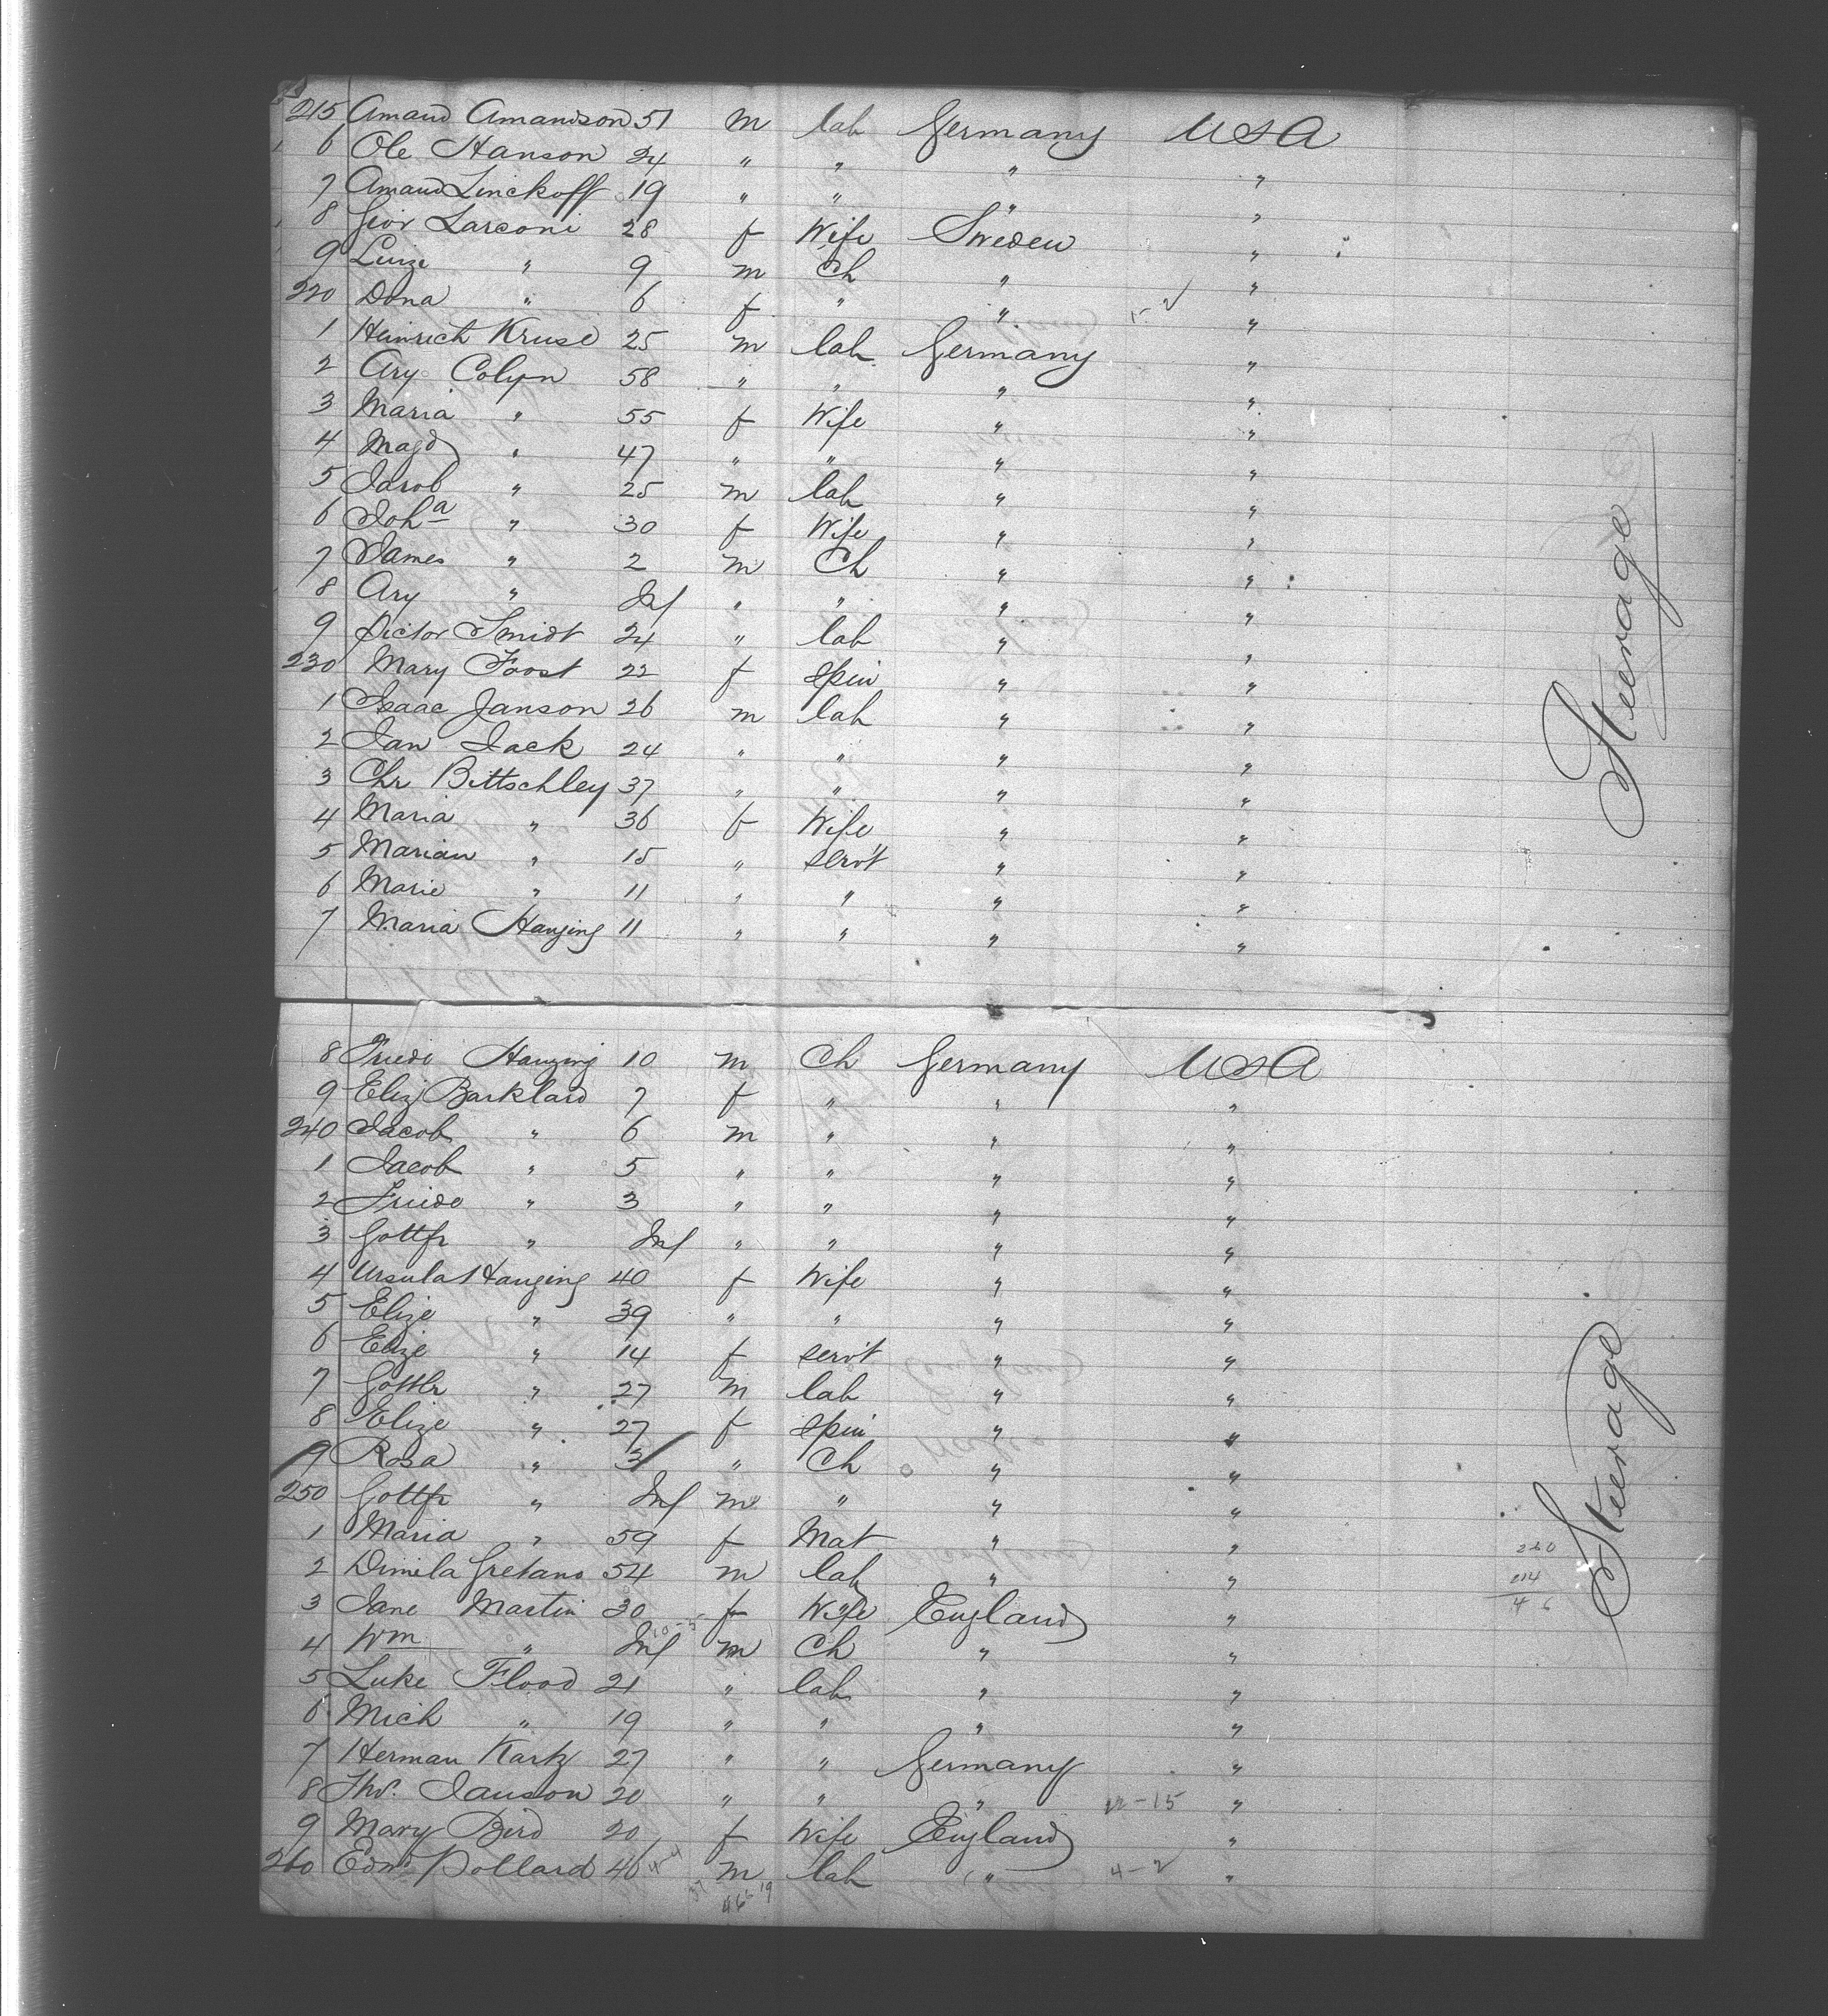 215 Amand Amandson 51 m lab Germany USA
6 Ole Hanson 24 " " " "
7 Amand Linckoff 19 " " " "
8 Larconi 28 f Wife Sweden "
9 " 9 m Ch " "
220 Dona " 6 f " " "
1 Heinrich Kruse 25 m lab Germany "
2 Ary Colyn 58 " " " "
3 Maria " 55 f Wife " "
4 Magd " 47 " " " "
5 Jacob " 25 m lab " "
6 Joha " 30 f Wife " "
7 James " 2 m Ch " "
8 Ary " Inf " " " "
9 Pictor Smidt 24 " lab " "
230 Mary Foost 22 f spin " "
1 Isaac Janson 26 m lab " "
2 Jan Jack 24 " " " "
3 Chr Bittschley 37 " " " "
4 Maria " 36 f Wife " "
5 Marian " 15 " servt " "
6 Marie " 11 " " " "
7 Maria Hanging 11 " " " "
Steerage
8 Friedo Hanging 10 m Ch Germany USA
9 Eliz Barklard 7 f " " "
240 Jacob " 6 m " " "
1 Jacob " 5 " " " "
2 Friedo " 3 " " " "
3 Gottfr " Inf " " " "
4 Ursula Hanging 40 f Wife " "
5 Elize " 39 " " " "
6 Elize " 14 f servt " "
7 Gottlr " 27 m lab " "
8 Elize " 27 f spin " "
9 Rosa " 3 " Ch " "
250 Gottfr " Inf m " " "
1 Maria " 59 f Mat " "
2 Dimila Gretano 54 m lab " "
3 Jane Martin 30 f Wife England "
4 Wm " Inf m Ch " "
5 Luke Flood 21 " lab " "
6 Mich " 19 " " " "
7 Herman Kartz 27 " " Germany "
8 Thr. Janson 20 " " " 12-15 "
9 Mary Bird 20 f Wife England "
260 Edwd Pollard 40 m lab " 4-2 "
Steerage
260
214
46